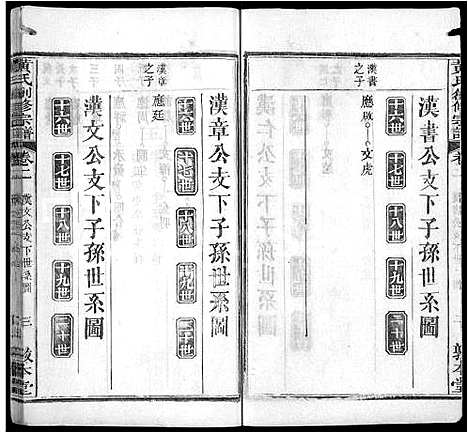 黃氏創修宗譜
敦本堂
漢書公支下子孫世系圖
十六世 十七世 十八世 十九世 二十世
漢書之子
應啟 文虎
漢章公支下子孫世系圖
十六世 十七世 十八世 十九世 二十世
漢章之子
應廷
漢文公支下子孫世系圖
十六世 十七世 十八世 十九世 二十世
黃氏創修宗譜 卷二 漢文公支下世系圖 三 敦本堂